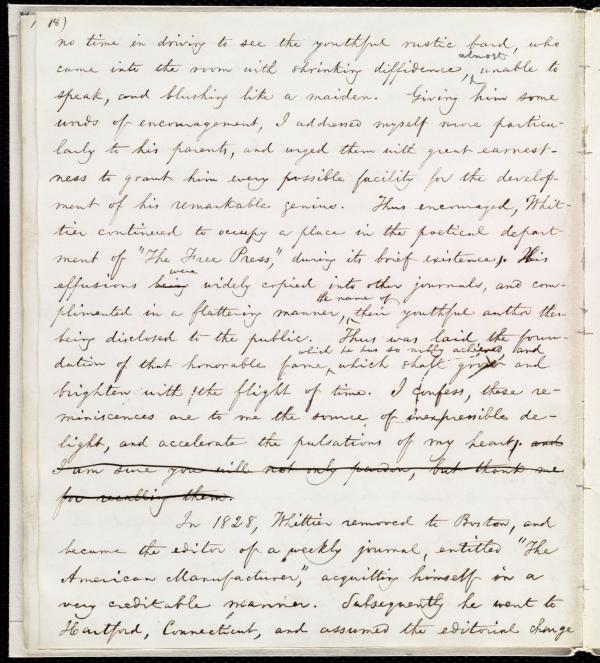 18)
no time in driving to see the youthful rustic bard, who
almost
came into the room with shrinking diffidence, unable to
speak, and blushing like a maiden. Giving him some
words of encouragement, I addressed myself more particu-
larly to his parents, and urged them with great earnest-
ness to grant him every possible facility for the develop-
ment of his remarkable genius. Thus encouraged, Whit-
tier continued to occupy a place in the poetical depart-
ment of "The Free Press," during its brief existence; His
were
effusions being widely copied into other journals, and com-
the name of
plimented in a flattering manner, their youthful author then
being disclosed to the public. Thus was laid the foun-
which he has so nobly achieved, and
dation of that honorable fame, which shall grow and
brighten with the flight of time. I confess, these re-
miniscences are to me the source of inexpressible de-
light, and accelerate the pulsations of my heart; and
I am sure you will not only pardon, but thank me
for recalling them.
In 1828, Whittier removed to Boston, and
became the editor of a weekly journal, entitled "The
American Manufacturer," acquitting himself in a
very creditable manner. Subsequently he went to
Hartford, Connecticut, and assumed the editorial charge